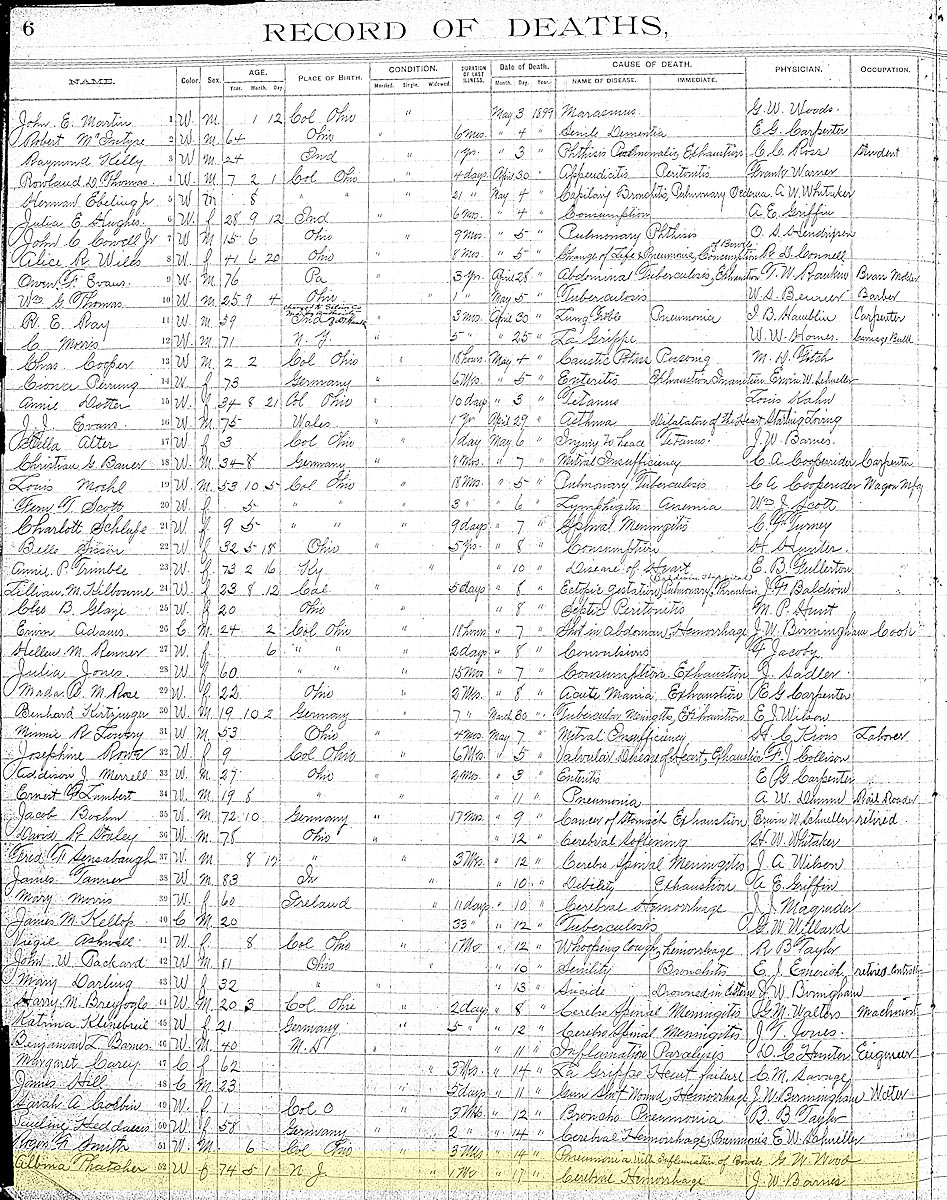 6
RECORD OF DEATHS,
NAME. Color. Sex. AGE. PLACE OF BIRTH. CONDITION. DURATION OF LAST ILLNESS. Date of Death. CAUSE OF DEATH. PHYSICIAN. OCCUPATION.
Year. Month. Day. Married. Single. Widowed. Month. Day. Year. NAME OF DISEASE. IMMEDIATE.
John E. Martin 1 W. M. 1 12 Col Ohio " May 3 1899 Marasmus G. W. Woods
Robert McIntyre 2 W. M. 64 Ohio 6 mos. " 4 " Senile Dementia E G. Carpenter
Raymond 3 W. M. 24 Ind 1 yr. " 3 " Phthisis Pulmonalis, Exhaustion C. C. Ross Student
Rowland D Thomas 4 W. M. 7 2 1 Col Ohio " 4 days April 30 " Appendicitis Peritonitis Frank Warner
Herman Ebeling Jr 5 W M. 8 " " " 21 " May 4 " Capilary Bronchitis, Pulmonary Oedema A. W. Whitaker
Julia E Hughes 6 W f 28 9 12 Ind 6 Mos. " 4 " Consumption A E. Griffin
John C Cowell Jr 7 W M. 15 6 Ohio 9 mos. " 5 " Pulmonary Phthisis O. S. Hendrixson
Alice R Wiles 8 W f 41 6 20 Ohio 8 Mos " 5 " Change of Life Pneumonia, Consumption of Bowels R. G. Connell
Owen F. Evans 9 W M. 76 Pa 3 Yrs. April 28 " Abdominal Tuberculosis, Exhaustion T. W.
Wm G Thomas 10 W M. 25 9 4 Ohio " 1 " May 5 " Tuberculosis W. S. Barber
R. E. Ray 11 W M. 39 Ind 3 Mos. April 30 " Lung Pneumonia I. B. Hamblin Carpenter
C Morris 12 W. M. 71 N. Y. 5 " " 25 " La Grippe W. W. Homes
Chas Cooper 13 W M 2 2 Col Ohio " 18 hours. May 4 " Caustic Potash M. H.
14 W f 73 Germany 6 Mos. " 5 " Enteritis Exhaustion Inanition Erwin W. Schueller
Annie Dotter 15 W f 34 8 21 Col Ohio 10 days " 3 " Tetanus Louis Kahn
J. J. Evans 16 W M. 75 Wales 1 Yr April 29 " Asthma Dilatation of the Heart Starling Loving
Stella Alter 17 W f 3 Col Ohio " 1 day May 6 " Injury to head Tetanus J. W. Barnes.
Christian G. Bauer 18 W. M. 34 8 Germany 8 Mos. " 7 " Mitral Insufficiency C A Cooperrider Carpenter
Louis Moehl 19 W. M. 53 10 5 Col Ohio 18 Mos. " 5 " Pulmonary Tuberculosis C A Cooperrider Wagon Mfg
Fern T. Scott 20 W f 5 " " " 3 " " 6 " Lymphigitis Anemia Wm J. Scott
Charlott Schlafe 21 W. f 9 5 " " " 9 days " 7 " Spinal Meningitis C F Turney
Belle 22 W. f 32 5 18 Ohio 5 Yrs. " 8 " Consumption H Hunter.
Annie P. Trimble 23 W f 73 2 16 Ky " 10 " Disease of Heart E. B. Fullerton
Lillian M. Kilbourne 24 W f 23 8 12 Col 5 days " 8 " Ectopic gestation, Pulmonary Thrombus J. F Baldwin
Cleo B. Glaze 25 W f 20 Ohio " 8 " Septic Peritonitis M. P. Hunt
Adams. 26 C M. 24 2 Col Ohio " 18 hours " 7 " Shot in Abdomen, Hemorrhage J. W. Birmingham Cook
Hellen M. Renner 27 W. f 6 " " " 2 days " 8 " Convulsions F Jacoby
Julia Jones. 28 W f 60 " " 15 Mos " 7 " Consumption, Exhaustion J. Sadler
Mada M Rose 29 W. f 22 Ohio 2 Mos. " 8 " Acute Mania, Exhaustion E G Carpenter
Benhard 30 W. M. 19 10 2 Germany " 7 " March 30 " Tubercular Meningitis, Exhaustion E. J Wilson
Minnie R 31 W. M. 53 Ohio 4 Mos. May 7 " Mitral Insufficiency H. C. Laborer
Josephine 32 W f 9 Col Ohio " 6 Mos " 5 " Valvular Disease of Heart, Exhaustion F. J. Collison
Addison J Merrell 33 W. M. 27 Ohio 2 Mos. " 3 " Enteritis E. G Carpenter
Ernest Lambert 34 W. M. 19 8 " " 11 " Pneumonia A W. Dunn Rail Roader
Jacob Boehn 35 W. M. 72 10 Germany 17 Mos. " 9 " Cancer of Stomach Exhaustion Erwin W. Schueller retired.
David R Staley 36 W M. 78 Ohio " 12 " Cerebral Softening H. W. Whitaker
Fred F. Sensabaugh 37 W. M 8 17 " " 3 Mos. " 12 " Cerebro Spinal Meningitis J A Wilson
James Tanner 38 W. M. 83 " 10 " Debility Exhaustion A E. Griffin
Mary Morris 39 W f 60 Ireland " 11 days " 10 " Cerebral Hemorrhage J. J. Magruder
James M. Kellop 40 C M. 20 " 33 " " 12 " Tuberculosis G. W Willard
Virgie Ashwell 41 W. f 8 Col Ohio " 1 Mo " 12 " Whooping Cough, hemorrhage R. B Taylor
John W. Packard 42 W M. 81 Ohio " 10 " Senility Bronchitis E. J. Emerick retired
Mary Darling 43 W f 32 " " 13 " Suicide Drowned in Cistern J. W. Birmingham
Harry M. Breyfogle 44 W M. 20 3 Col Ohio " 2 days " 8 " Cerebro Spinal Meningitis G. M. Walters Machinist
Katrina 45 W f 21 Germany 5 " " 12 " Cerebro Spinal Meningitis J. T. Jones.
Benjaman L Barnes 46 W. M. 40 " 11 " Inflamation Paralysis D. C. Hunter Engineer
Margaret Carey 47 C f 62 3 Mos. " 14 " La Grippe Heart failure C. M. Savage
James Hill 48 C M. 23 " 5 days " 11 " Gun Shot Wound, Hemorrhage J. W. Birmingham
Sarah A Corbin 49 W. f 1 Col O " 3 Mos " 12 " Broncho Pneumonia B. B Taylor
Pauline Heddaeus 50 W f 58 Germany 2 " " 14 " Cerebral Hemorrhage, Pneumonia E. W. Schueller
Smith 51 W. M. 6 Col Ohio " 3 Mos " 14 " Pneumonia with Inflamation of Bowels G. W. Wood
Albina Thatcher 52 W f 74 5 1 N. J. " 1 Mo " 17 " Cerebral Hemorrhage J. W. Barnes